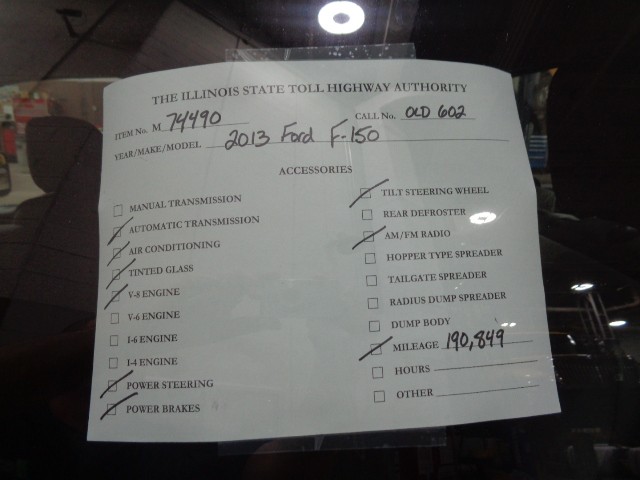 THE ILLINOIS STATE TOLL HIGHWAY AUTHORITY
ITEM No. M 74490 CALL No. OLD 602
YEAR/MAKE/MODEL 2013 Ford F-150
ACCESSORIES
MANUAL TRANSMISSION
AUTOMATIC TRANSMISSION
AIR CONDITIONING
TINTED GLASS
V-8 ENGINE
V-6 ENGINE
I-6 ENGINE
I-4 ENGINE
POWER STEERING
POWER BRAKES
TILT STEERING WHEEL
REAR DEFROSTER
AM/FM RADIO
HOPPER TYPE SPREADER
TAILGATE SPREADER
RADIUS DUMP SPREADER
DUMP BODY
MILEAGE 190,849
HOURS
OTHER